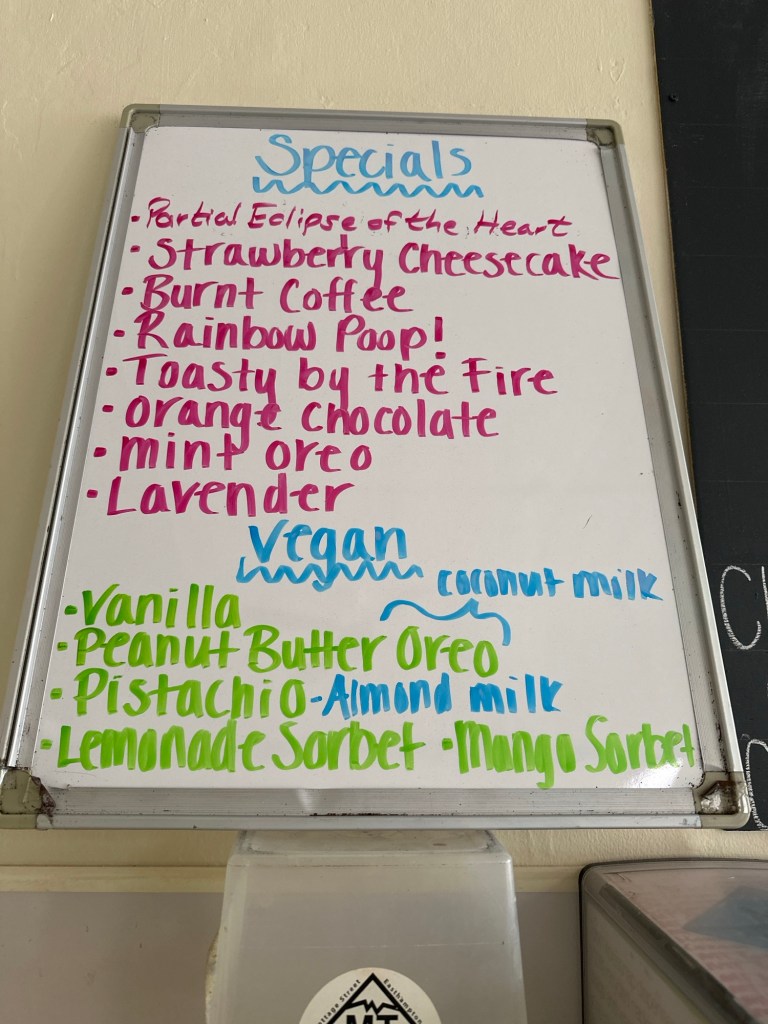 Specials
• Partial Eclipse of the Heart
• Strawberry Cheesecake
• Burnt Coffee
• Rainbow Poop!
• Toasty by the Fire
• Orange Chocolate
• mint oreo
• Lavender
Vegan
coconut milk
• Vanilla
• Peanut Butter Oreo
• Pistachio - Almond milk
• Lemonade Sorbet • Mango Sorbet